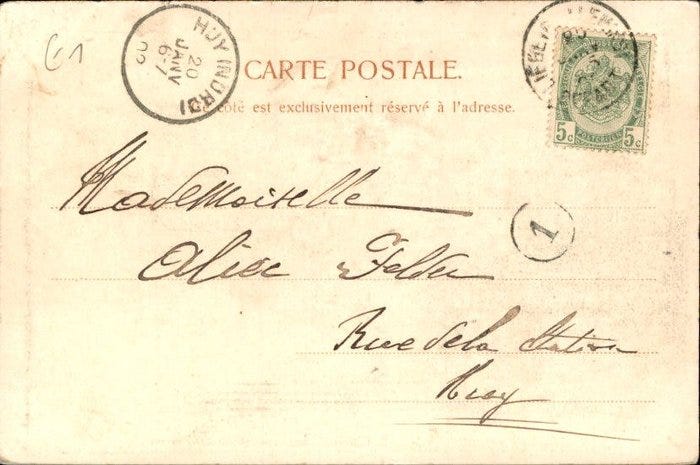 G1
HUY (NORD)
20
JANV
6-7
02
CARTE POSTALE.
côté est exclusivement réservé à l'adresse.
5c 5c
1
Mademoiselle
Alice Felder
Rue de la Station
Huy